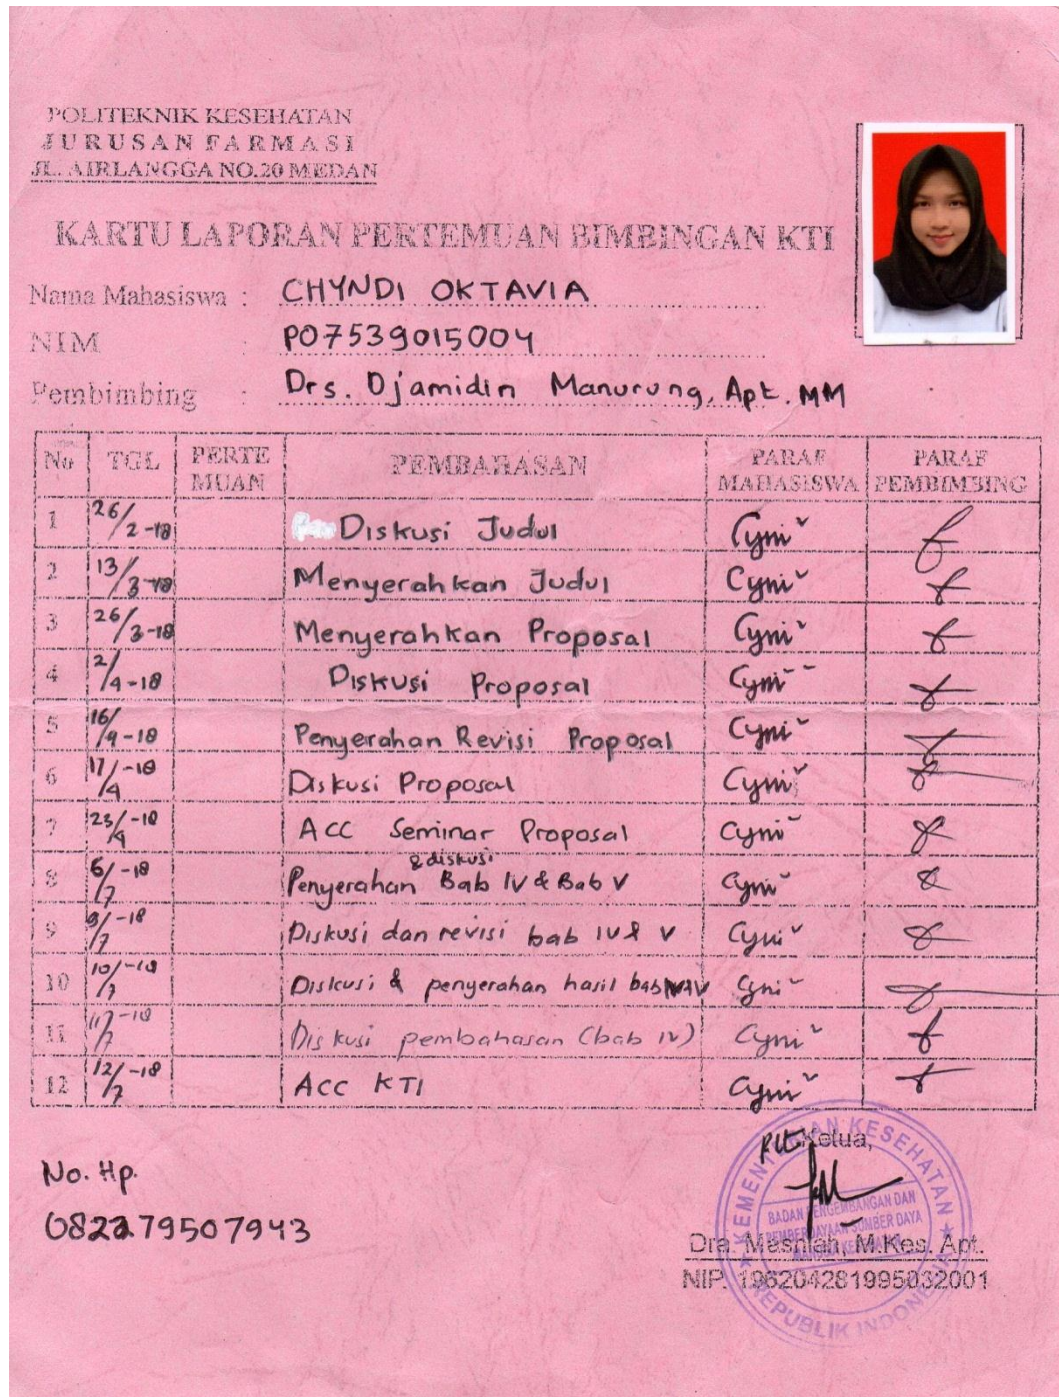 POLITEKNIK KESEHATAN
JURUSAN FARMASI
JL. AIRLANGGA NO.20 MEDAN
KARTU LAPORAN PERTEMUAN BIMBINGAN KTI
Nama Mahasiswa : CHYNDI OKTAVIA
NIM : PO7539015004
Pembimbing : Drs. Djamidin Manurung, Apt. MM
No TGL PERTEMUAN PEMBAHASAN PARAF MAHASISWA PARAF PEMBIMBING
1 26/2-18 Diskusi Judul Cyni
2 13/3-18 Menyerahkan Judul Cyni
3 26/3-18 Menyerahkan Proposal Cyni
4 2/4-18 Diskusi Proposal Cyni
5 16/4-18 Penyerahan Revisi Proposal Cyni
6 17/4-18 Diskusi Proposal Cyni
7 23/4-18 ACC Seminar Proposal Cyni
8 6/7-18 Penyerahan & diskusi Bab IV & Bab V Cyni
9 9/7-18 Diskusi dan revisi bab IV & V Cyni
10 10/7-18 Diskusi & penyerahan hasil bab Cyni
11 11/7-18 Diskusi pembahasan (bab IV) Cyni
12 12/7-18 Acc KTI Cyni
Plt. Ketua,
KEMENTERIAN KESEHATAN
BADAN PENGEMBANGAN DAN
PEMBERDAYAAN SUMBER DAYA
REPUBLIK INDONESIA
Dra. Masniah, M.Kes. Apt.
NIP. 196204281995032001
No. Hp.
082279507943